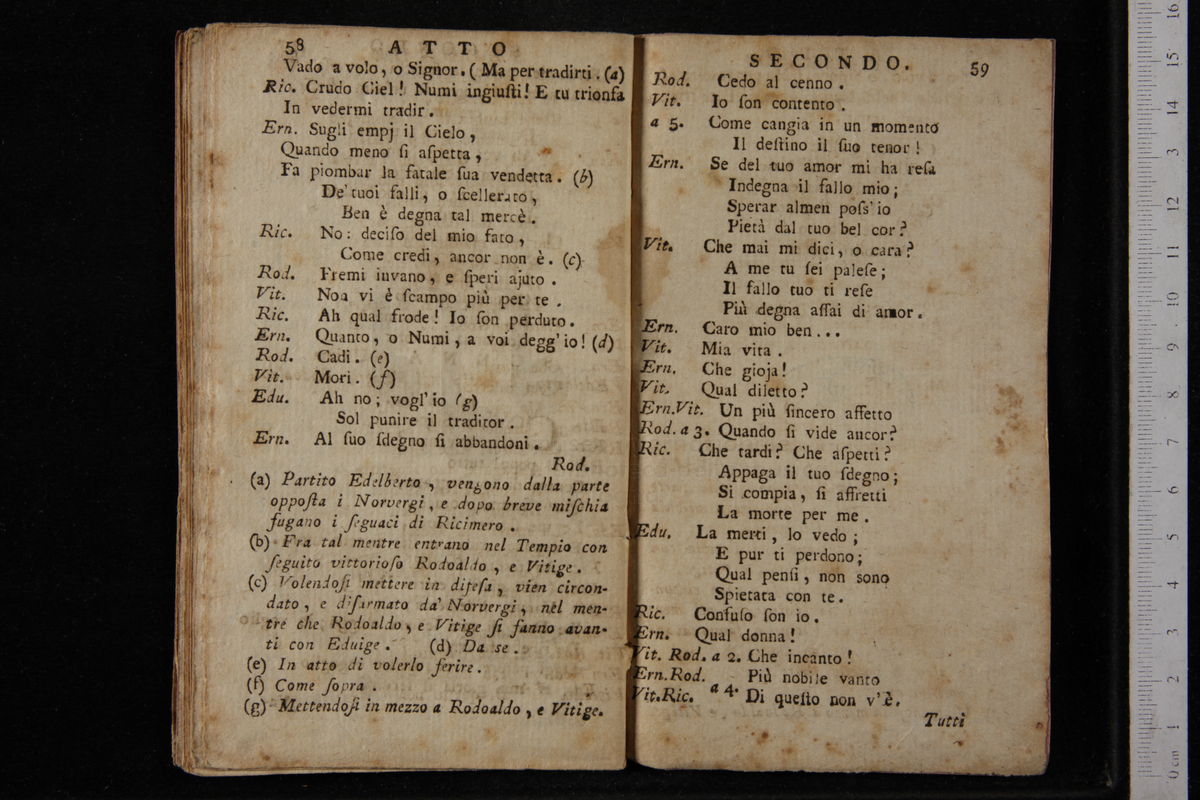 58 ATTO
Vado a volo, o Signor. ( Ma per tradirti. (a)
Ric. Crudo Ciel! Numi ingiuſti! E tu trionfa
In vedermi tradir.
Ern. Sugli empj il Cielo,
Quando meno ſi aſpetta,
Fa piombar la fatale ſua vendetta. (b)
De' tuoi falli, o ſcellerato,
Ben è degna tal mercè.
Ric. No: deciſo del mio fato,
Come credi, ancor non è. (c)
Rod. Fremi invano, e ſperi ajuto.
Vit. Non vi è ſcampo più per te.
Ric. Ah qual frode! Io ſon perduto.
Ern. Quanto, o Numi, a voi degg'io! (d)
Rod. Cadi. (e)
Vit. Mori. (f)
Edu. Ah no; vogl'io (g)
Sol punire il traditor.
Ern. Al ſuo ſdegno ſi abbandoni.
Rod.
(a) Partito Edelberto, vengono dalla parte
oppoſta i Norvergi, e dopo breve miſchia
fugano i ſeguaci di Ricimero.
(b) Fra tal mentre entrano nel Tempio con
ſeguito vittorioſo Rodoaldo, e Vitige.
(c) Volendoſi mettere in difeſa, vien circon-
dato, e diſarmato da' Norvergi, nel men-
tre che Rodoaldo, e Vitige ſi fanno avan-
ti con Eduige. (d) Da se.
(e) In atto di volerlo ferire.
(f) Come ſopra.
(g) Mettendoſi in mezzo a Rodoaldo, e Vitige.
SECONDO. 59
Rod. Cedo al cenno.
Vit. Io ſon contento.
a 5. Come cangia in un momento
Il deſtino il ſuo tenor!
Ern. Se del tuo amor mi ha reſa
Indegna il fallo mio;
Sperar almen poſs'io
Pietà dal tuo bel cor?
Vit. Che mai mi dici, o cara?
A me tu ſei paleſe;
Il fallo tuo ti reſe
Più degna aſſai di amor.
Ern. Caro mio ben...
Vit. Mia vita.
Ern. Che gioja!
Vit. Qual diletto?
Ern. Vit. Un più ſincero affetto
Rod. a 3. Quando ſi vide ancor?
Ric. Che tardi? Che aſpetti?
Appaga il tuo ſdegno;
Si compia, ſi affretti
La morte per me.
Edu. La merti, lo vedo;
E pur ti perdono;
Qual penſi, non sono
Spietata con te.
Ric. Confuſo ſon io.
Ern. Qual donna!
Vit. Rod. a 2. Che incanto!
Ern. Rod. Più nobile vanto
Vit. Ric. a 4. Di queſto non v'è.
Tutti